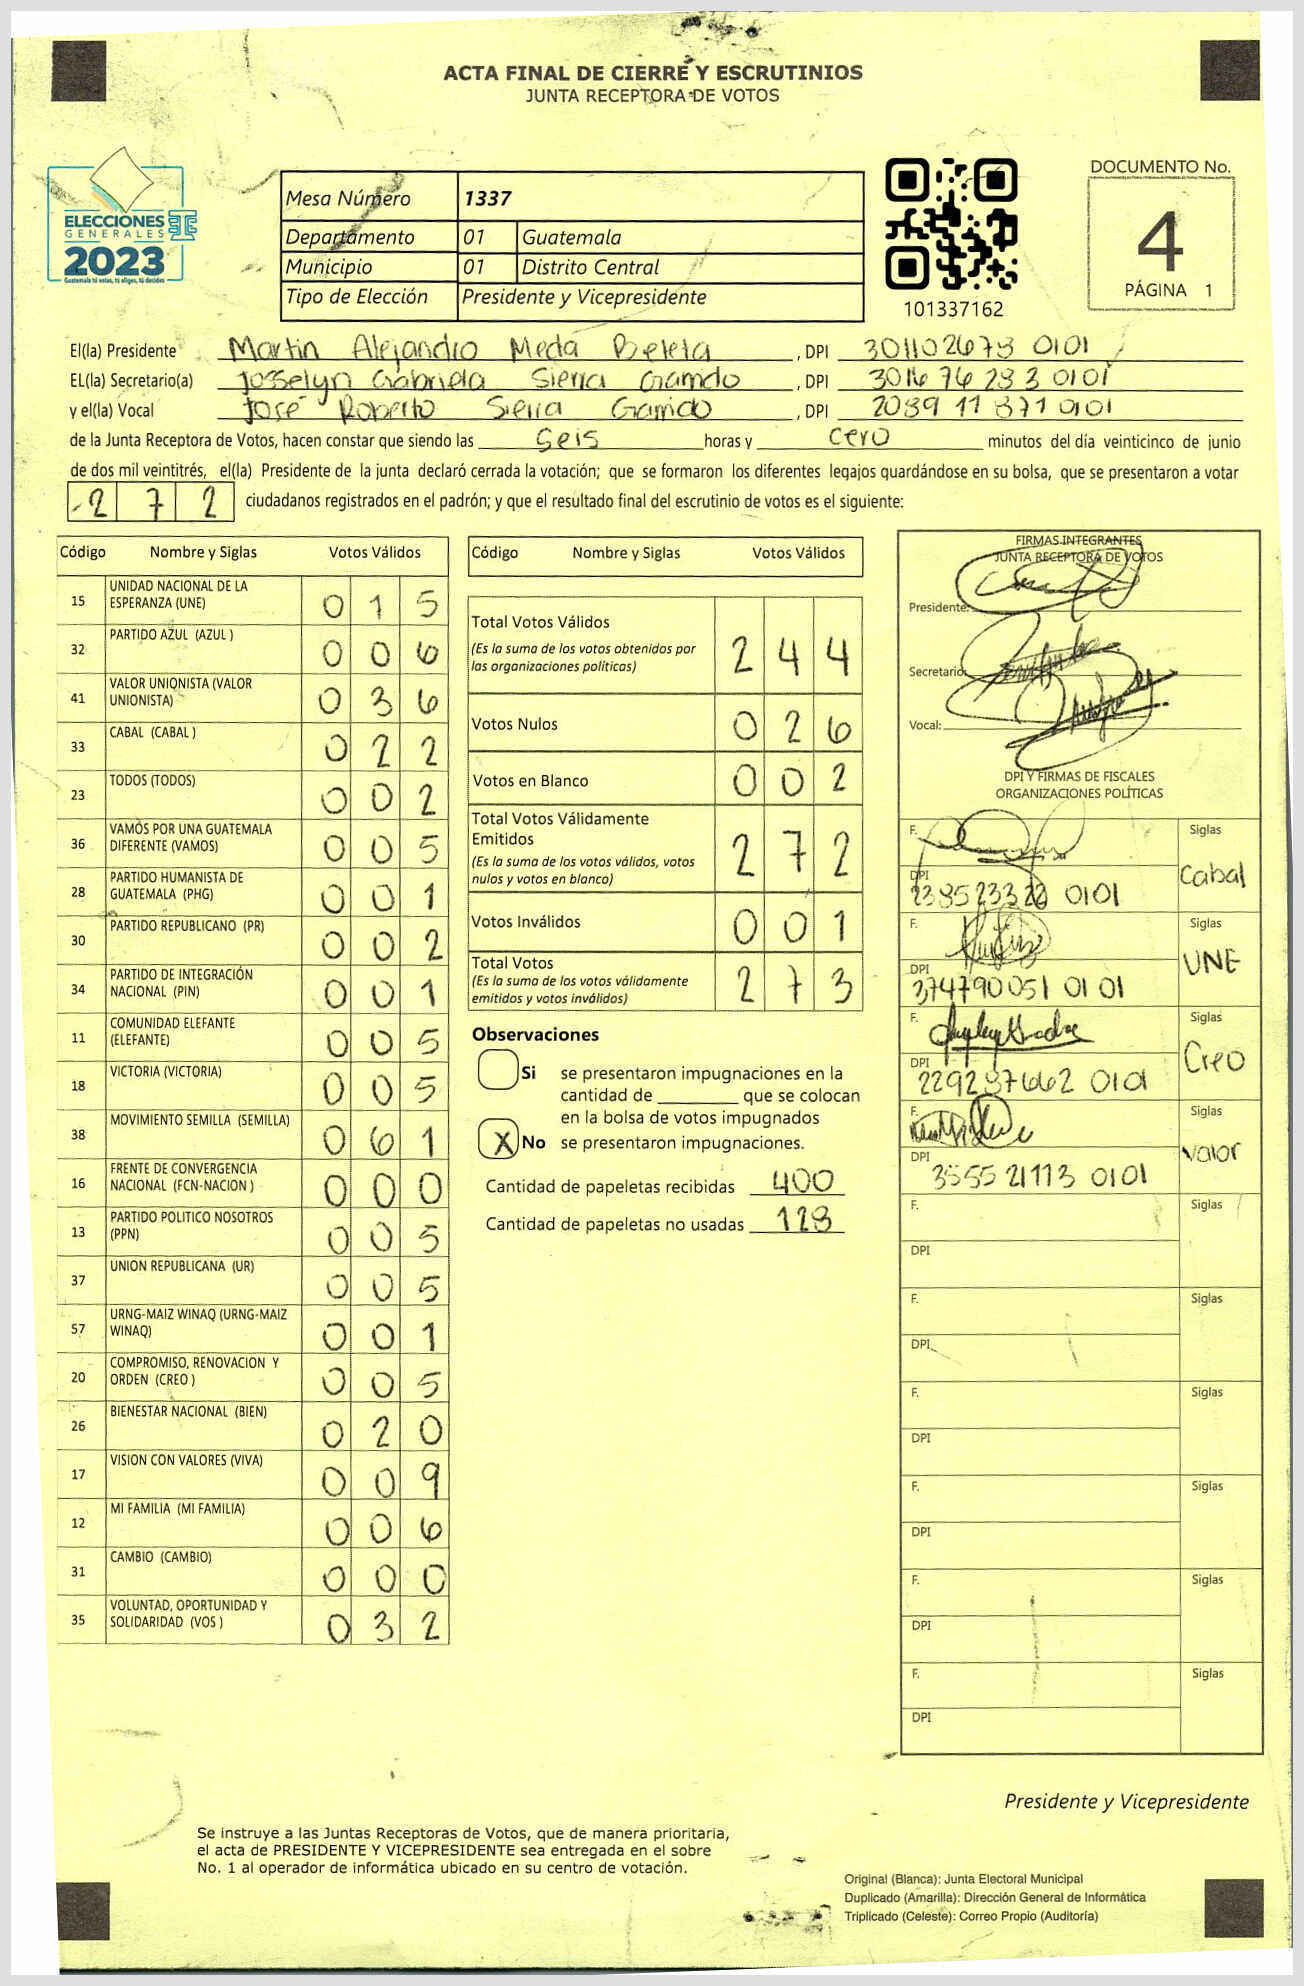 ACTA FINAL DE CIERRE Y ESCRUTINIOS
JUNTA RECEPTORA DE VOTOS
ELECCIONES
GENERALES
2023
Guatemala tú votas, tú eliges, tú decides
Mesa Número 1337
Departamento 01 Guatemala
Municipio 01 Distrito Central
Tipo de Elección Presidente y Vicepresidente
101337162
DOCUMENTO No.
4
PÁGINA 1
El(la) Presidente Martin Alejandro Meda Beleta, DPI 301102673 0101
EL(la) Secretario(a) Josselyn Gabriela Sierra Garrido, DPI 3016 76 233 0101
y el(la) Vocal José Roberto Sierra Garrido, DPI 2039 11 371 0101
de la Junta Receptora de Votos, hacen constar que siendo las seis horas y cero minutos del día veinticinco de junio
de dos mil veintitrés, el(la) Presidente de la junta declaró cerrada la votación; que se formaron los diferentes legajos guardándose en su bolsa, que se presentaron a votar
272 ciudadanos registrados en el padrón; y que el resultado final del escrutinio de votos es el siguiente:
Código Nombre y Siglas Votos Válidos
15 UNIDAD NACIONAL DE LA ESPERANZA (UNE) 0 1 5
32 PARTIDO AZUL (AZUL ) 0 0 6
41 VALOR UNIONISTA (VALOR UNIONISTA) 0 3 6
33 CABAL (CABAL ) 0 2 2
23 TODOS (TODOS) 0 0 2
36 VAMOS POR UNA GUATEMALA DIFERENTE (VAMOS) 0 0 5
28 PARTIDO HUMANISTA DE GUATEMALA (PHG) 0 0 1
30 PARTIDO REPUBLICANO (PR) 0 0 2
34 PARTIDO DE INTEGRACIÓN NACIONAL (PIN) 0 0 1
11 COMUNIDAD ELEFANTE (ELEFANTE) 0 0 5
18 VICTORIA (VICTORIA) 0 0 5
38 MOVIMIENTO SEMILLA (SEMILLA) 0 6 1
16 FRENTE DE CONVERGENCIA NACIONAL (FCN-NACION ) 0 0 0
13 PARTIDO POLITICO NOSOTROS (PPN) 0 0 5
37 UNION REPUBLICANA (UR) 0 0 5
57 URNG-MAIZ WINAQ (URNG-MAIZ WINAQ) 0 0 1
20 COMPROMISO, RENOVACION Y ORDEN (CREO ) 0 0 5
26 BIENESTAR NACIONAL (BIEN) 0 2 0
17 VISION CON VALORES (VIVA) 0 0 9
12 MI FAMILIA (MI FAMILIA) 0 0 6
31 CAMBIO (CAMBIO) 0 0 0
35 VOLUNTAD, OPORTUNIDAD Y SOLIDARIDAD (VOS ) 0 3 2
Código Nombre y Siglas Votos Válidos
Total Votos Válidos 2 4 4
(Es la suma de los votos obtenidos por
las organizaciones políticas)
Votos Nulos 0 2 6
Votos en Blanco 0 0 2
Total Votos Válidamente
Emitidos 2 7 2
(Es la suma de los votos válidos, votos
nulos y votos en blanco)
Votos Inválidos 0 0 1
Total Votos 2 7 3
(Es la suma de los votos válidamente
emitidos y votos inválidos)
Observaciones
Si se presentaron impugnaciones en la
cantidad de ________ que se colocan
en la bolsa de votos impugnados
X No se presentaron impugnaciones.
Cantidad de papeletas recibidas 400
Cantidad de papeletas no usadas 128
FIRMAS INTEGRANTES
JUNTA RECEPTORA DE VOTOS
Presidente:
Secretario:
Vocal:
DPI Y FIRMAS DE FISCALES
ORGANIZACIONES POLÍTICAS
F. Siglas
DPI 0101 Cabal
F. Siglas
DPI 374790051 0101 UNE
F. Siglas
DPI 229237662 0101 Creo
F. Siglas
DPI 3555 21173 0101 valor
F. Siglas
DPI
F. Siglas
DPI
F. Siglas
DPI
F. Siglas
DPI
F. Siglas
DPI
F. Siglas
DPI
Presidente y Vicepresidente
Se instruye a las Juntas Receptoras de Votos, que de manera prioritaria,
el acta de PRESIDENTE Y VICEPRESIDENTE sea entregada en el sobre
No. 1 al operador de informática ubicado en su centro de votación.
Original (Blanca): Junta Electoral Municipal
Duplicado (Amarilla): Dirección General de Informática
Triplicado (Celeste): Correo Propio (Auditoría)